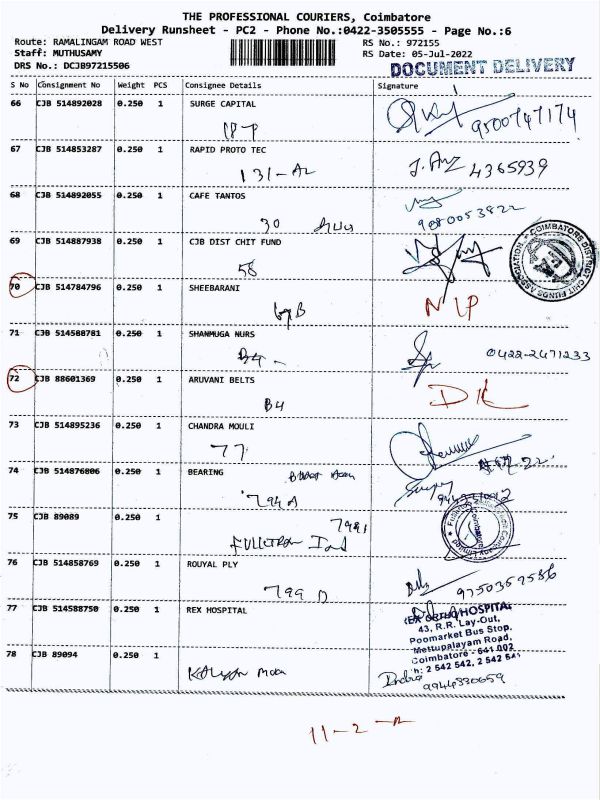 THE PROFESSIONAL COURIERS, Coimbatore
Delivery Runsheet - PC2 - Phone No.:0422-3505555 - Page No.:6
Route: RAMALINGAM ROAD WEST RS No.: 972155
Staff: MUTHUSAMY RS Date: 05-Jul-2022
DRS No.: DCJB97215506 DOCUMENT DELIVERY
S No Consignment No Weight PCS Consignee Details Signature
66 CJB 514892028 0.250 1 SURGE CAPITAL
9500747174
67 CJB 514853287 0.250 1 RAPID PROTO TEC
131-A2 4365939
68 CJB 514892055 0.250 1 CAFE TANTOS
30 9080053822
69 CJB 514887938 0.250 1 CJB DIST CHIT FUND
58
COIMBATORE DISTRICT CHIT FUNDS ASSOCIATION
70 CJB 514784796 0.250 1 SHEEBARANI
71 CJB 514588781 0.250 1 SHANMUGA NURS
B4 - 0422-2471233
72 CJB 88601369 0.250 1 ARUVANI BELTS
B4
73 CJB 514895236 0.250 1 CHANDRA MOULI
77
74 CJB 514876806 0.250 1 BEARING
794 A
75 CJB 89089 0.250 1
76 CJB 514858769 0.250 1 ROUYAL PLY
799 D 9750359586
77 CJB 514588750 0.250 1 REX HOSPITAL
REX ORTHO HOSPITAL
43, R.R. Lay-Out,
Poomarket Bus Stop,
Mettupalayam Road,
Coimbatore - 641 002
78 CJB 89094 0.250 1
9944330659